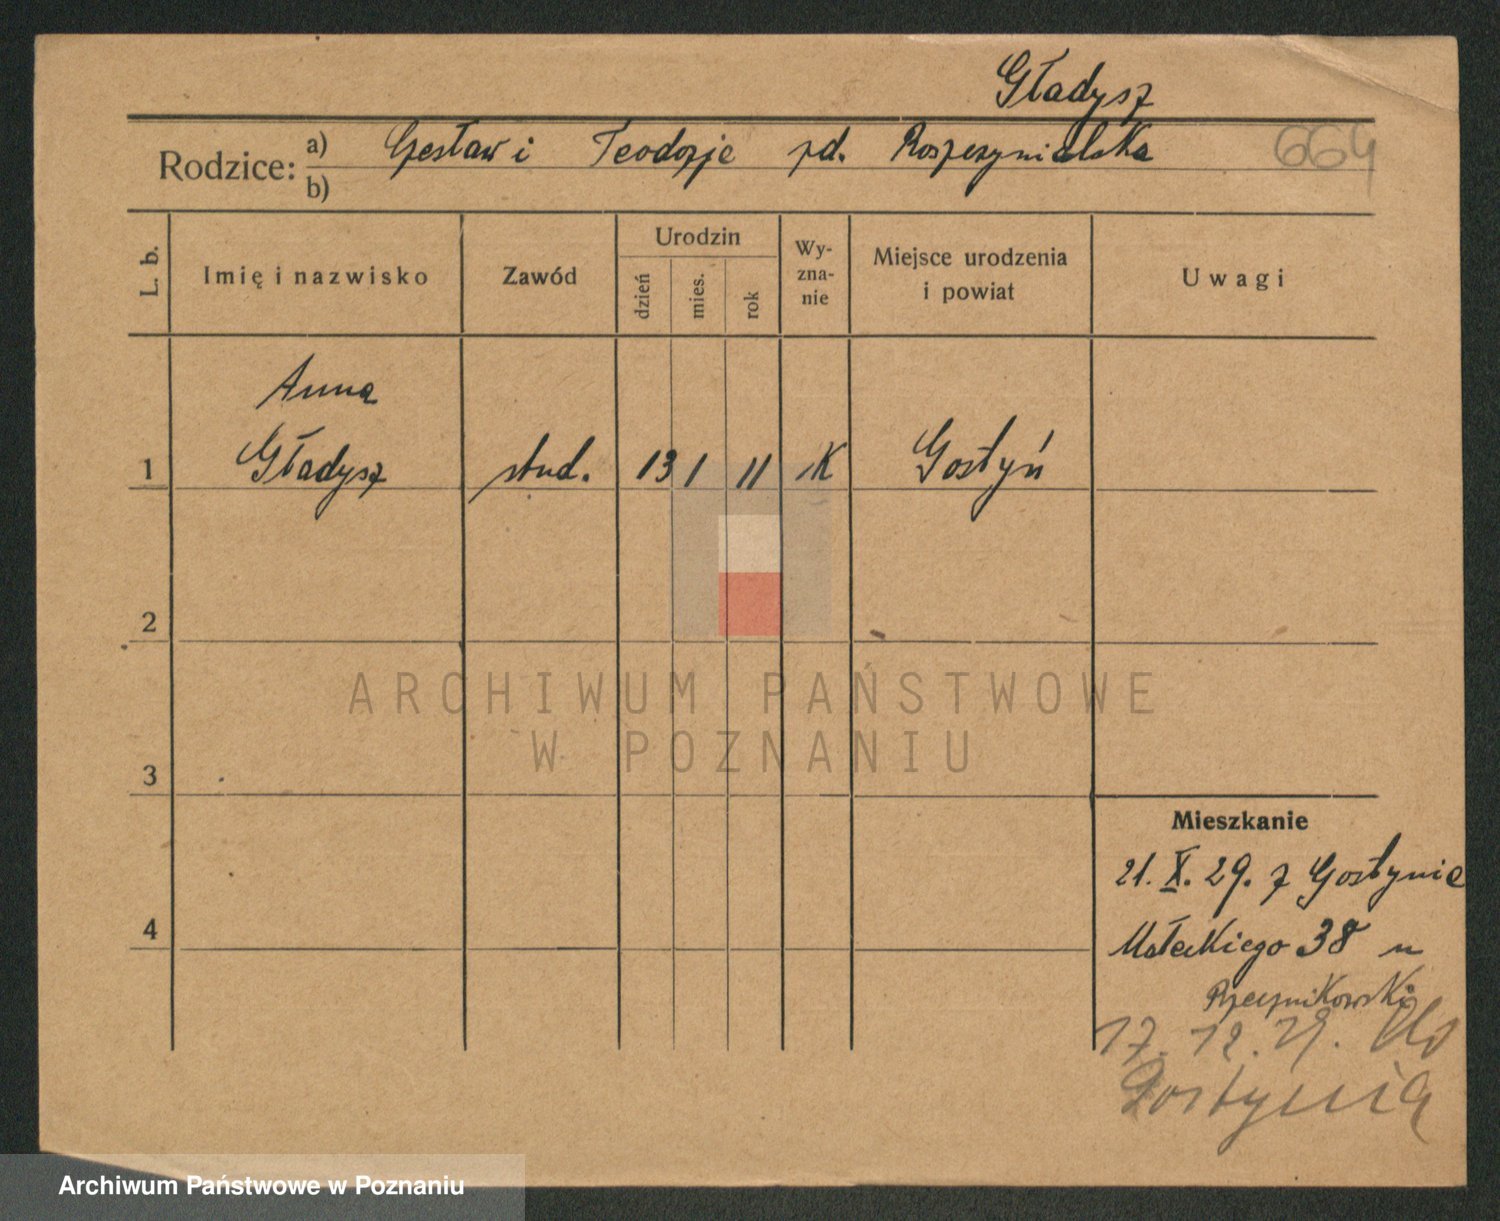 Gładysz
Rodzice: a) Czesław i Teodozje zd. Roszczynialska 664
b)
L. b. Imię i nazwisko Zawód Urodzin dzień mies. rok Wyznanie Miejsce urodzenia i powiat Uwagi
Anna
1 Gładysz stud. 13 1 11 K Gostyń
2
ARCHIWUM PAŃSTWOWE
W POZNANIU
3
Mieszkanie
21. X. 29. z Gostynie
4 Małeckiego 38 u
17. 12. 29. do
Gostynia
Archiwum Państwowe w Poznaniu